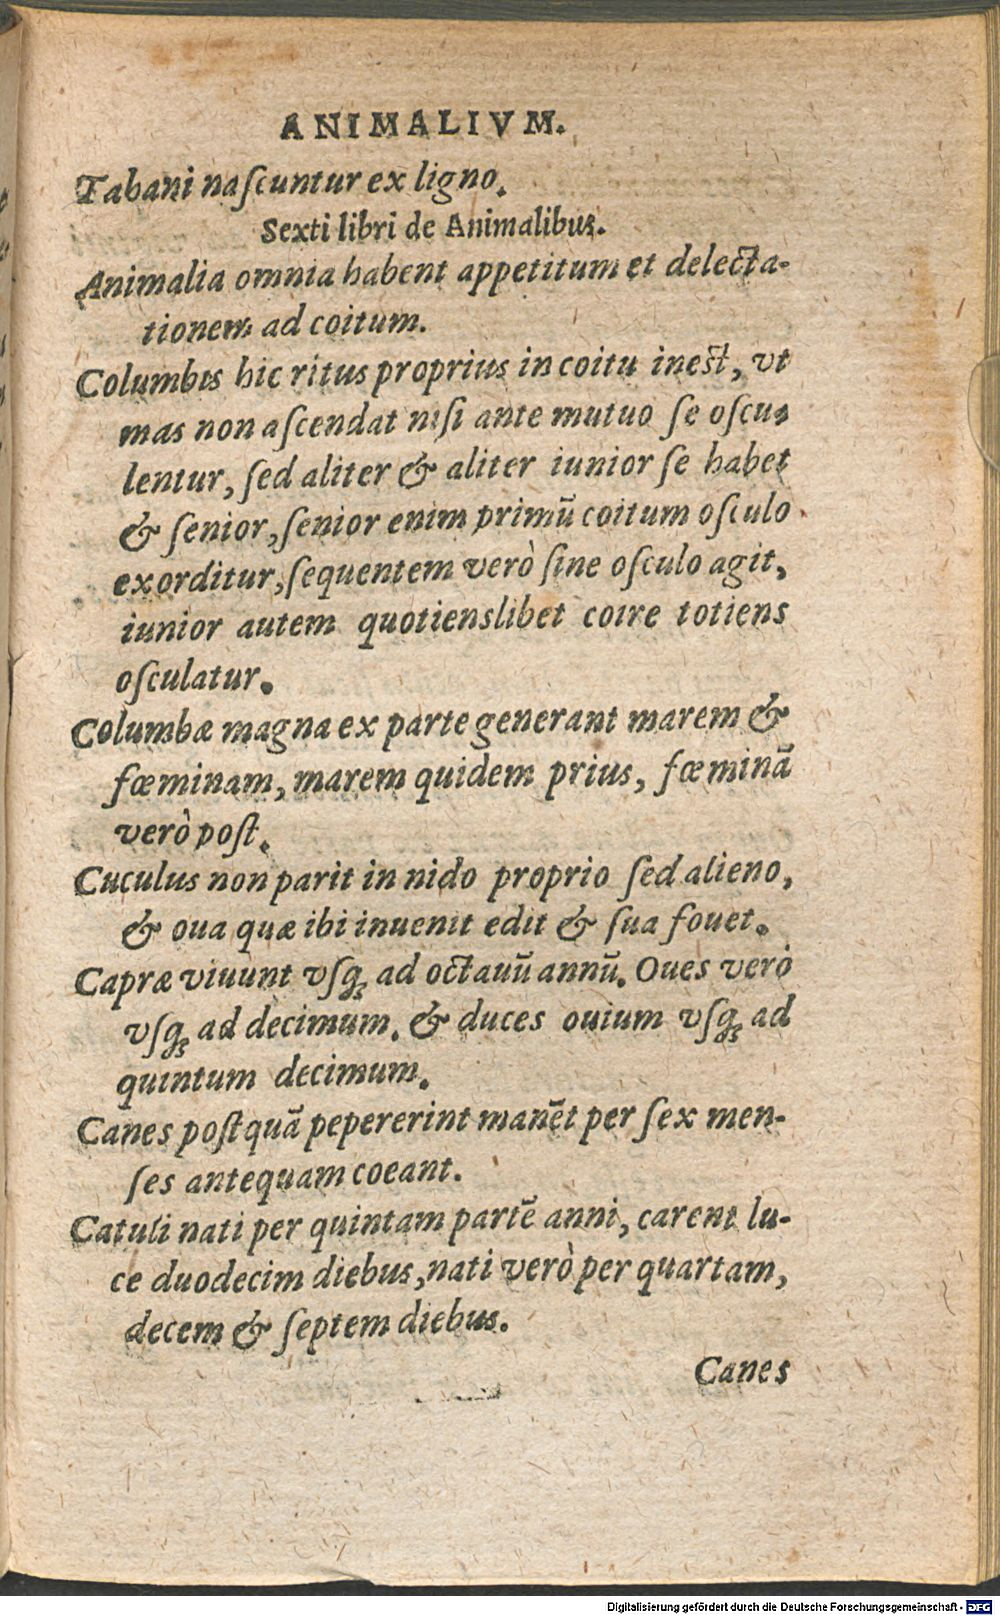 ANIMALIVM.
Tabani naſcuntur ex ligno.
Sexti libri de Animalibus.
Animalia omnia habent appetitum et delecta-
tionem ad coitum.
Columbis hic ritus proprius in coitu ineſt, vt
mas non aſcendat niſi ante mutuo ſe oſcu-
lentur, ſed aliter & aliter iunior ſe habet
& ſenior, ſenior enim primū coitum oſculo
exorditur, ſequentem verò ſine oſculo agit,
iunior autem quotienslibet coire totiens
oſculatur.
Columbæ magna ex parte generant marem &
fœminam, marem quidem prius, fœminā
verò poſt.
Cuculus non parit in nido proprio ſed alieno,
& oua quæ ibi inuenit edit & ſua fouet.
Capræ viuunt vſq; ad octauū annū. Oues verò
vſq; ad decimum. & duces ouium vſq; ad
quintum decimum.
Canes poſtquā pepererint manēt per ſex men-
ſes antequam coeant.
Catuli nati per quintam partē anni, carent lu-
ce duodecim diebus, nati verò per quartam,
decem & ſeptem diebus.
Canes
Digitalisierung gefördert durch die Deutsche Forschungsgemeinschaft - DFG